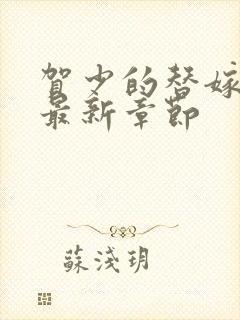 賀少的替嫁
最新章節
蘇淺玥